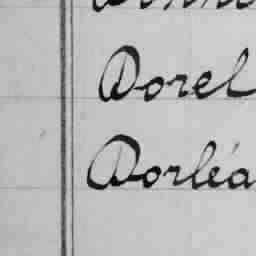 Dorel
Dorléa